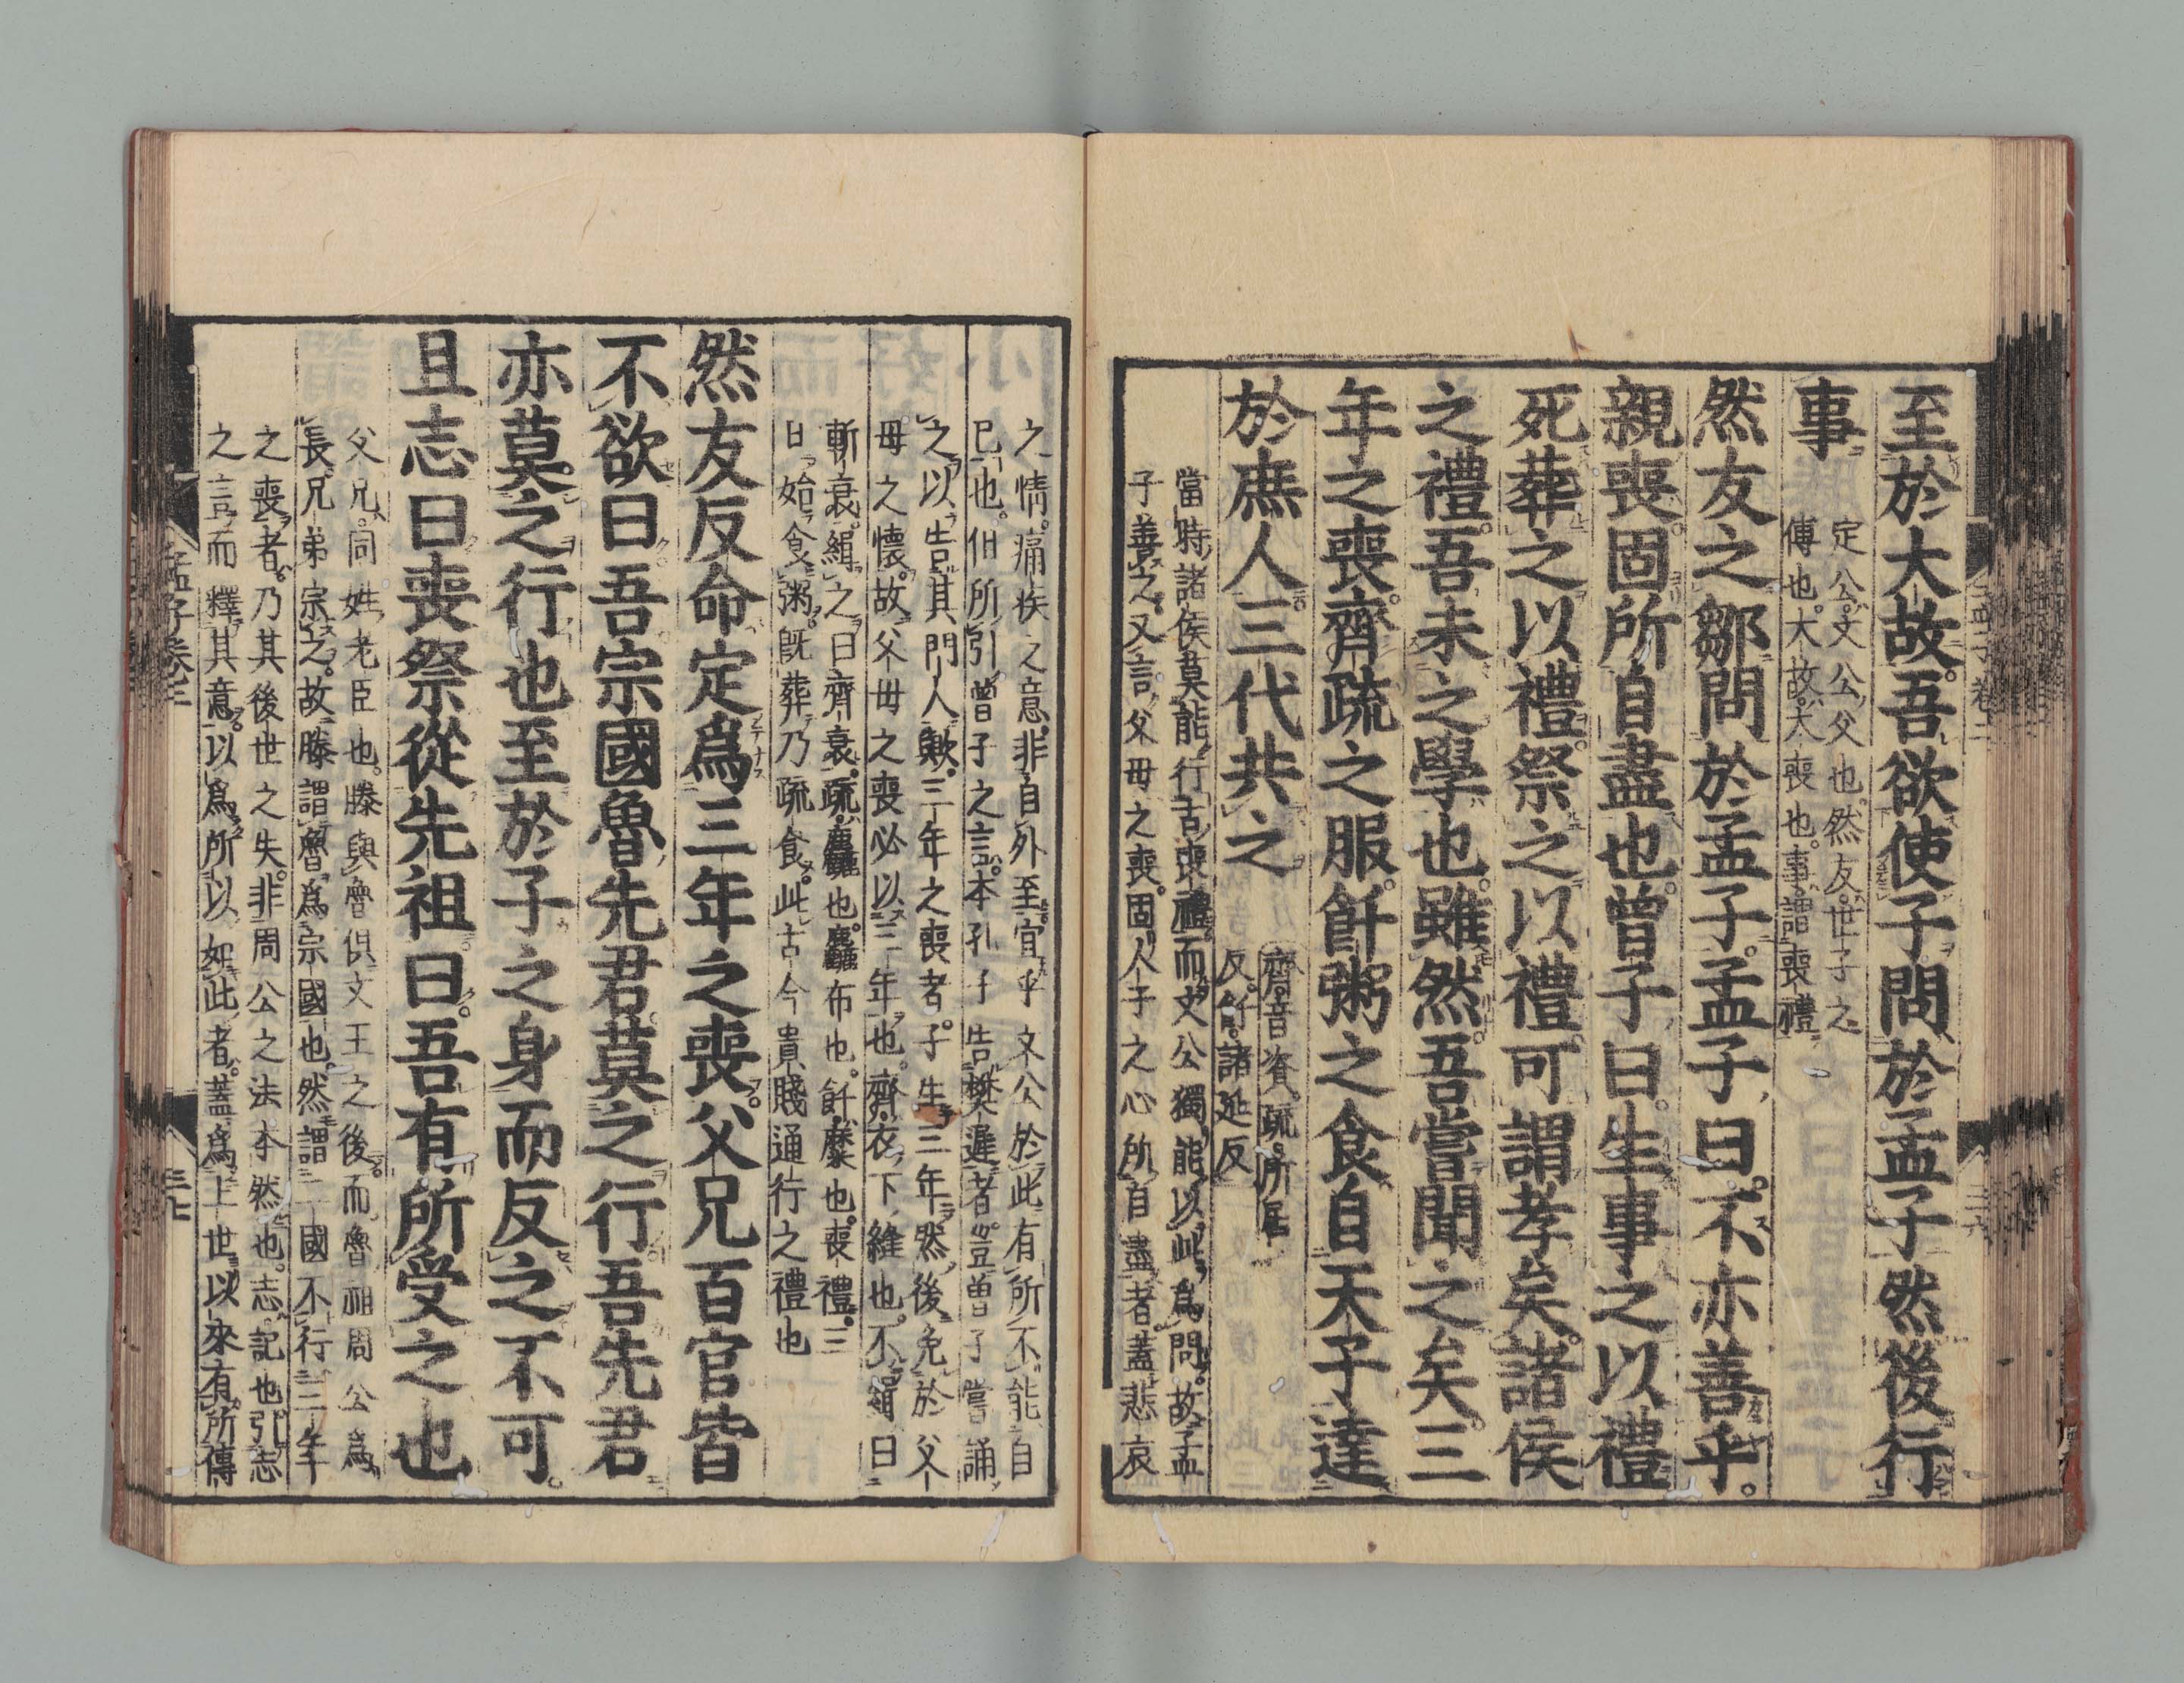 至於大故吾欲使子問於孟子然後行
事
定公文公父也然友世子之
傅也大故大喪也事謂喪禮
然友之鄒問於孟子孟子曰不亦善乎
親喪固所自盡也曾子曰生事之以禮
死葬之以禮祭之以禮可謂孝矣諸侯
之禮吾未之學也雖然吾嘗聞之矣三
年之喪齊疏之服飦粥之食自天子達
於庶人三代共之
齊音資疏所居
反飦諸延反
當時諸侯莫能行古喪禮而文公獨能以此爲問故孟
子善之又言父母之喪固人子之心所自盡者蓋悲哀
之情痛疾之意非自外至宜乎文公於此有所不能自
已也但所引曾子之言本孔子告樊遲者豈曾子嘗誦
之以告其門人歟三年之喪者子生三年然後免於父
母之懷故父母之喪必以三年也齊衣下縫也不緝曰
斬衰緝之曰齊衰疏麤也麤布也飦糜也喪禮三
日始食粥旣葬乃疏食此古今貴賤通行之禮也
然友反命定爲三年之喪父兄百官皆
不欲曰吾宗國魯先君莫之行吾先君
亦莫之行也至於子之身而反之不可
且志曰喪祭從先祖曰吾有所受之也
父兄同姓老臣也滕與魯俱文王之後而魯祖周公爲
長兄弟宗之故滕謂魯爲宗國也然謂二國不行三年
之喪者乃其後世之失非周公之法本然也志記也引志
之言而釋其意以爲所以如此者蓋爲上世以來有所傳
孟子卷三
三七